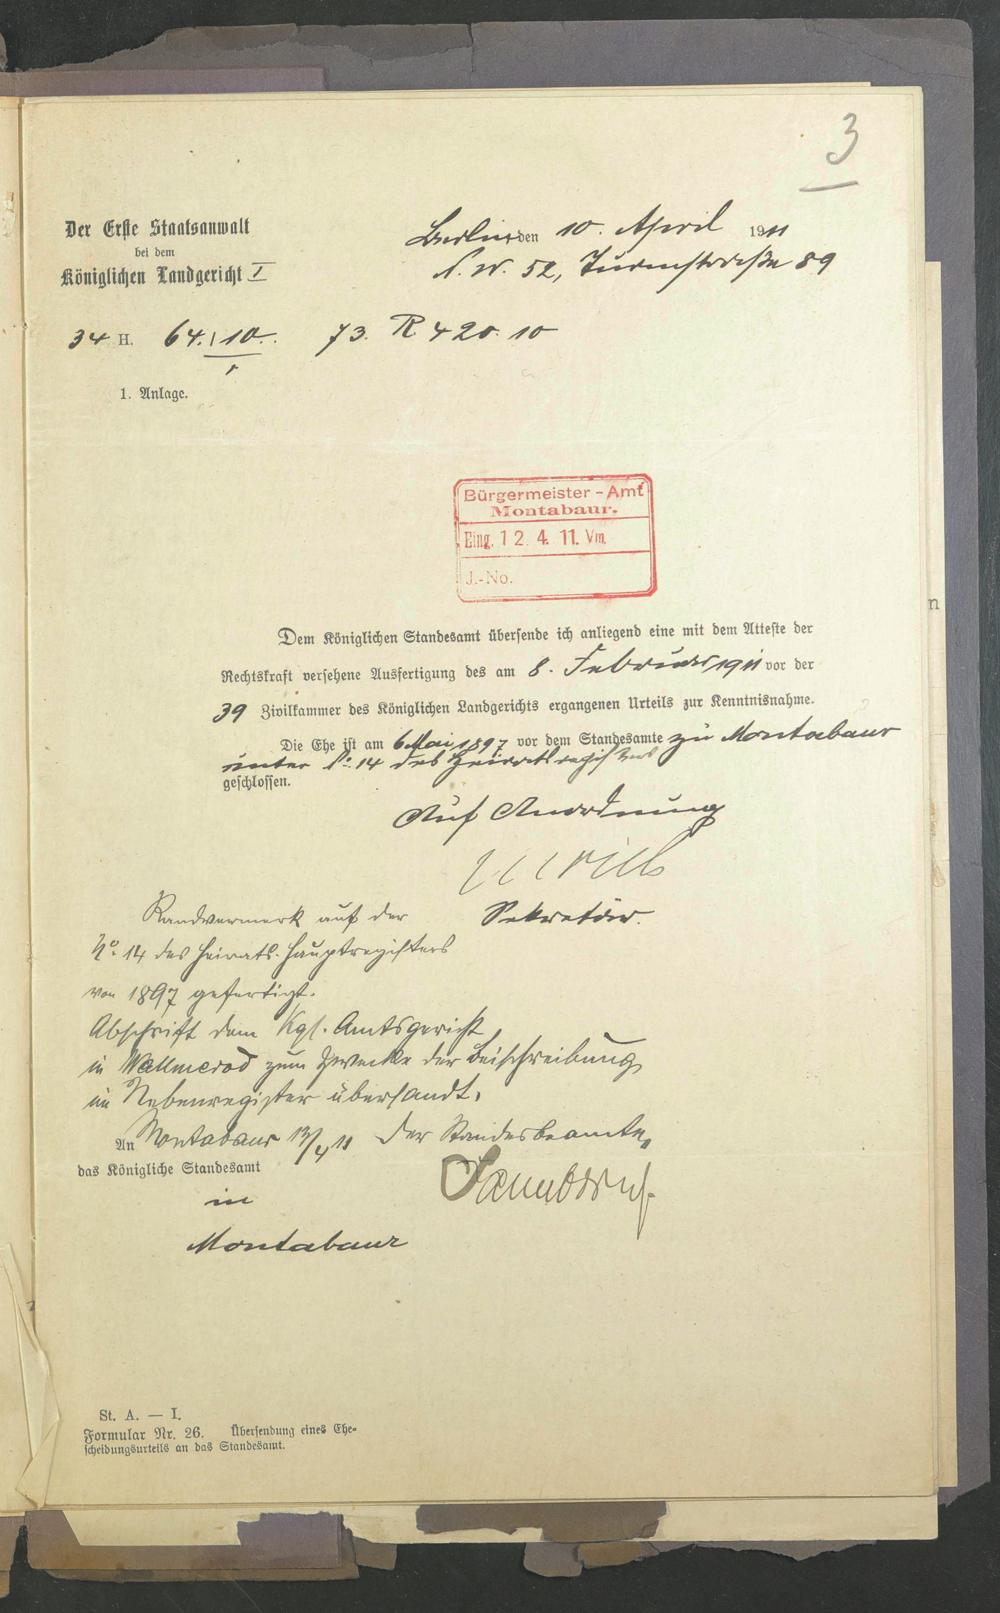 3
Der Erste Staatsanwalt
bei dem
Königlichen Landgericht I
Berlin, den 10. April 1911
N. W. 52, Turmstraße 89
34 H. 64. 10. 73. R 420. 10
1. Anlage.
Bürgermeister-Amt
Montabaur.
Eing. 12. 4. 11. Vm.
J.-No.
Dem Königlichen Standesamt übersende ich anliegend eine mit dem Atteste der
Rechtskraft versehene Ausfertigung des am 8. Februar 1911 vor der
39 Zivilkammer des Königlichen Landgerichts ergangenen Urteils zur Kenntnisnahme.
Die Ehe ist am 6 Mai 1897 vor dem Standesamte zu Montabaur
unter No 14 des Heiratsregisters
geschlossen.
Auf Anordnung
Sekretär.
Randvermerk auf der
No 14 des Heirats-Hauptregisters
von 1897 gefertigt.
Abschrift dem Kgl. Amtsgericht
in Wallmerod zum Zwecke der Beischreibung
im Nebenregister übersandt.
Montabaur 13/4 11 Der Standesbeamte,
An
das Königliche Standesamt
in
Montabaur
St. A. — I.
Formular Nr. 26. Übersendung eines Ehe-
scheidungsurteils an das Standesamt.